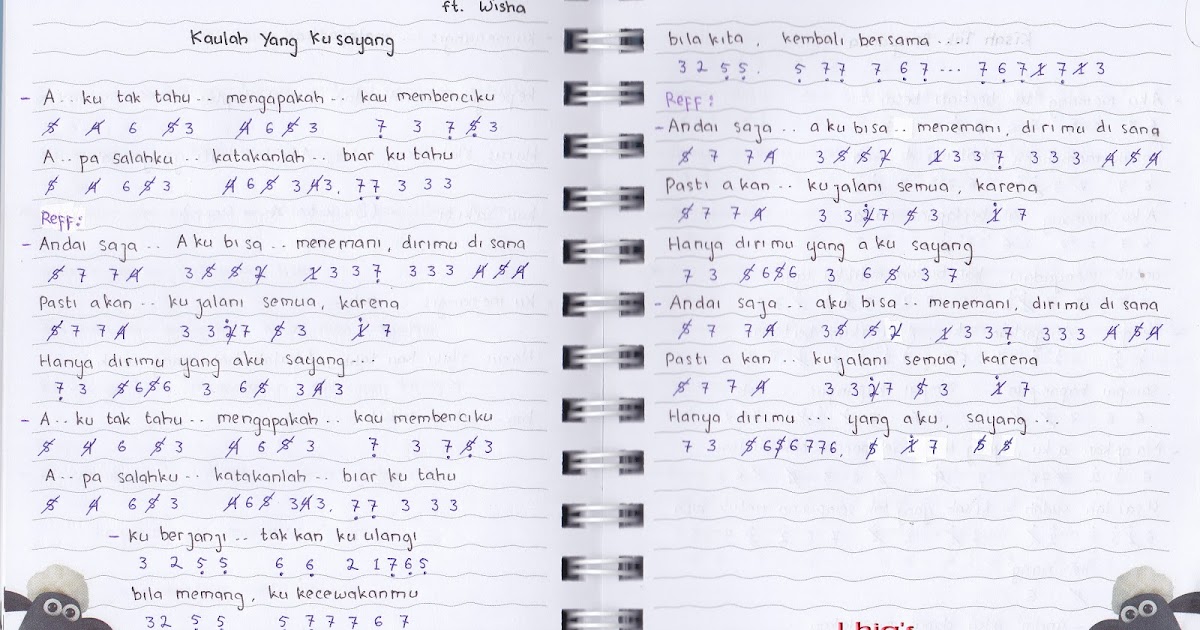 ft. Wisha
Kaulah Yang Kusayang
- A.. ku tak tahu.. mengapakah.. kau membenciku
5̸ 4̸ 6 5̸ 3 4̸ 6 5̸ 3 7̣ 3 7̣ 5̸̣ 3
A.. pa salahku.. katakanlah.. biar ku tahu
5̸ 4̸ 6 5̸ 3 4̸ 6 5̸ 3 4̸ 3. 7̣ 7̣ 3 3 3
Reff:
- Andai saja.. Aku bisa.. menemani, dirimu di sana
5̸ 7 7 4̸ 3 5̸ 5̸ 2̸ 1̸ 3 3 7̣ 3 3 3 4̸ 5̸ 4̸
Pasti akan.. ku jalani semua, karena
5̸ 7 7 4̸ 3 3 2̸̇ 7 5̸ 3 1̸̇ 7
Hanya dirimu yang aku sayang...
7̣ 3 5̸ 6 5̸ 6 3 6 5̸ 3 4̸ 3
- A.. ku tak tahu.. mengapakah.. kau membenciku
5̸ 4̸ 6 5̸ 3 4̸ 6 5̸ 3 7̣ 3 7̣ 5̸̣ 3
A.. pa salahku.. katakanlah.. biar ku tahu
5̸ 4̸ 6 5̸ 3 4̸ 6 5̸ 3 4̸ 3. 7̣ 7̣ 3 3 3
- ku berjanji.. tak kan ku ulangi
3 2 5̣ 5̣ 6̣ 6̣ 2 1 7̣ 6̣ 5̣
bila memang, ku kecewakanmu
3 2 5̣ 5̣ 5 7 7 7 6 7
bila kita, kembali bersama...
3 2 5̣ 5̣. 5̣ 7̣ 7̣ 7̣ 6̣ 7̣ ... 7̣ 6̣ 7̣ 1̸ 7̣ 1̸ 3
Reff:
- Andai saja.. aku bisa.. menemani, dirimu di sana
5̸ 7 7 4̸ 3 5̸ 5̸ 2̸ 1̸ 3 3 7̣ 3 3 3 4̸ 5̸ 4̸
Pasti akan.. ku jalani semua, karena
5̸ 7 7 4̸ 3 3 2̸̇ 7 5̸ 3 1̸̇ 7
Hanya dirimu yang aku sayang
7 3 5̸ 6 5̸ 6 3 6 5̸ 3 7
- Andai saja.. aku bisa.. menemani, dirimu di sana
5̸ 7 7 4̸ 3 5̸ 5̸ 2̸ 1̸ 3 3 7̣ 3 3 3 4̸ 5̸ 4̸
Pasti akan.. ku jalani semua, karena
5̸ 7 7 4̸ 3 3 2̸̇ 7 5̸ 3 1̸̇ 7
Hanya dirimu... yang aku, sayang...
7 3 5̸ 6 5̸ 6 7 7 6, 5̸ 1̸̇ 7 5̸ 5̸